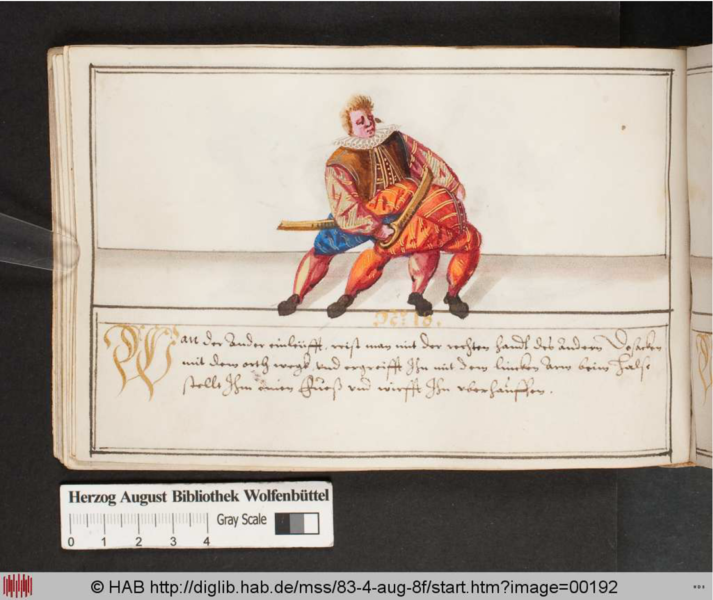 Wan der Ander einläufft, reist man mit der rechten handt des andern Dosacken
mit dem orth wegk, vnd ergreifft Ihn mit dem lincken Arm beim Halse
stellt Ihm einen Fueß vnd wirfft Ihn vberhauffen.
Herzog August Bibliothek Wolfenbüttel
Gray Scale
0 1 2 3 4
© HAB http://diglib.hab.de/mss/83-4-aug-8f/start.htm?image=00192